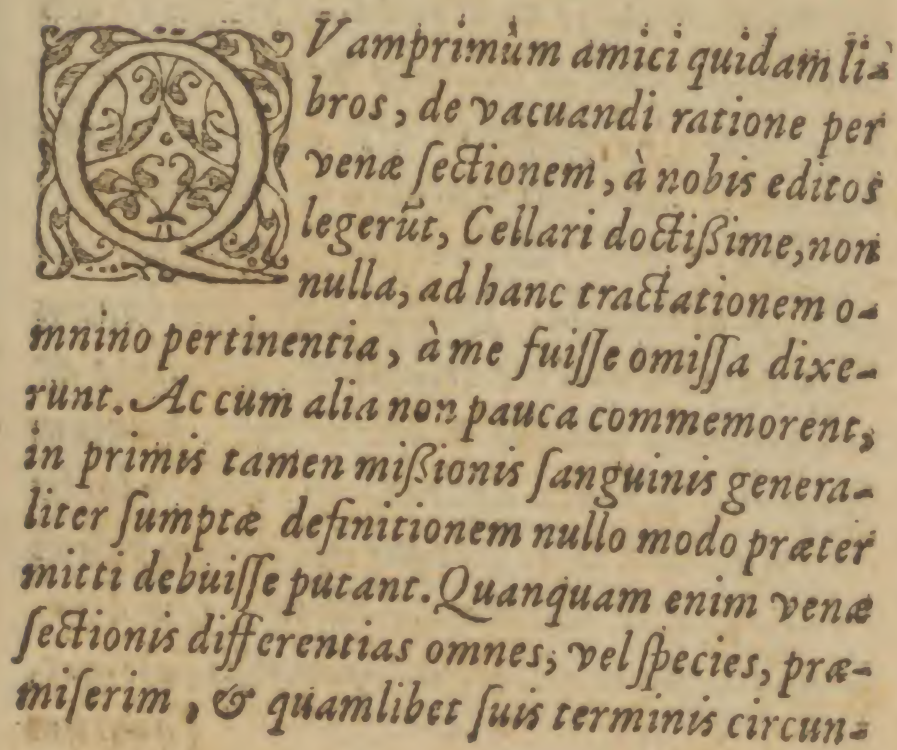 QVamprimùm amici quidam li-
bros, de vacuandi ratione per
venæ ſectionem, à nobis editos
legerũt, Cellari doctißime, non
nulla, ad hanc tractationem o-
mnino pertinentia, à me fuiſſe omiſſa dixe-
runt. Ac cum alia non pauca commemorent,
in primis tamen mißionis ſanguinis genera-
liter ſumptæ definitionem nullo modo præter
mitti debuiſſe putant. Quanquam enim venæ
ſectionis differentias omnes, vel ſpecies, præ-
miſerim, & quamlibet ſuis terminis circun-